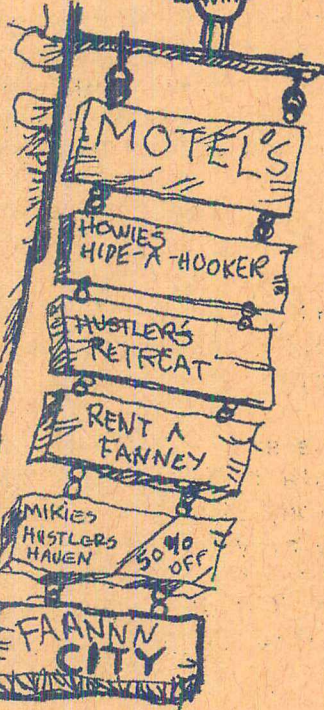 MOTEL'S
HOWIES
HIDE-A-HOOKER
HUSTLER'S
RETREAT
RENT A
FANNEY
MIKIES
HUSTLERS
HAVEN
50% OFF
FAANNN
CITY